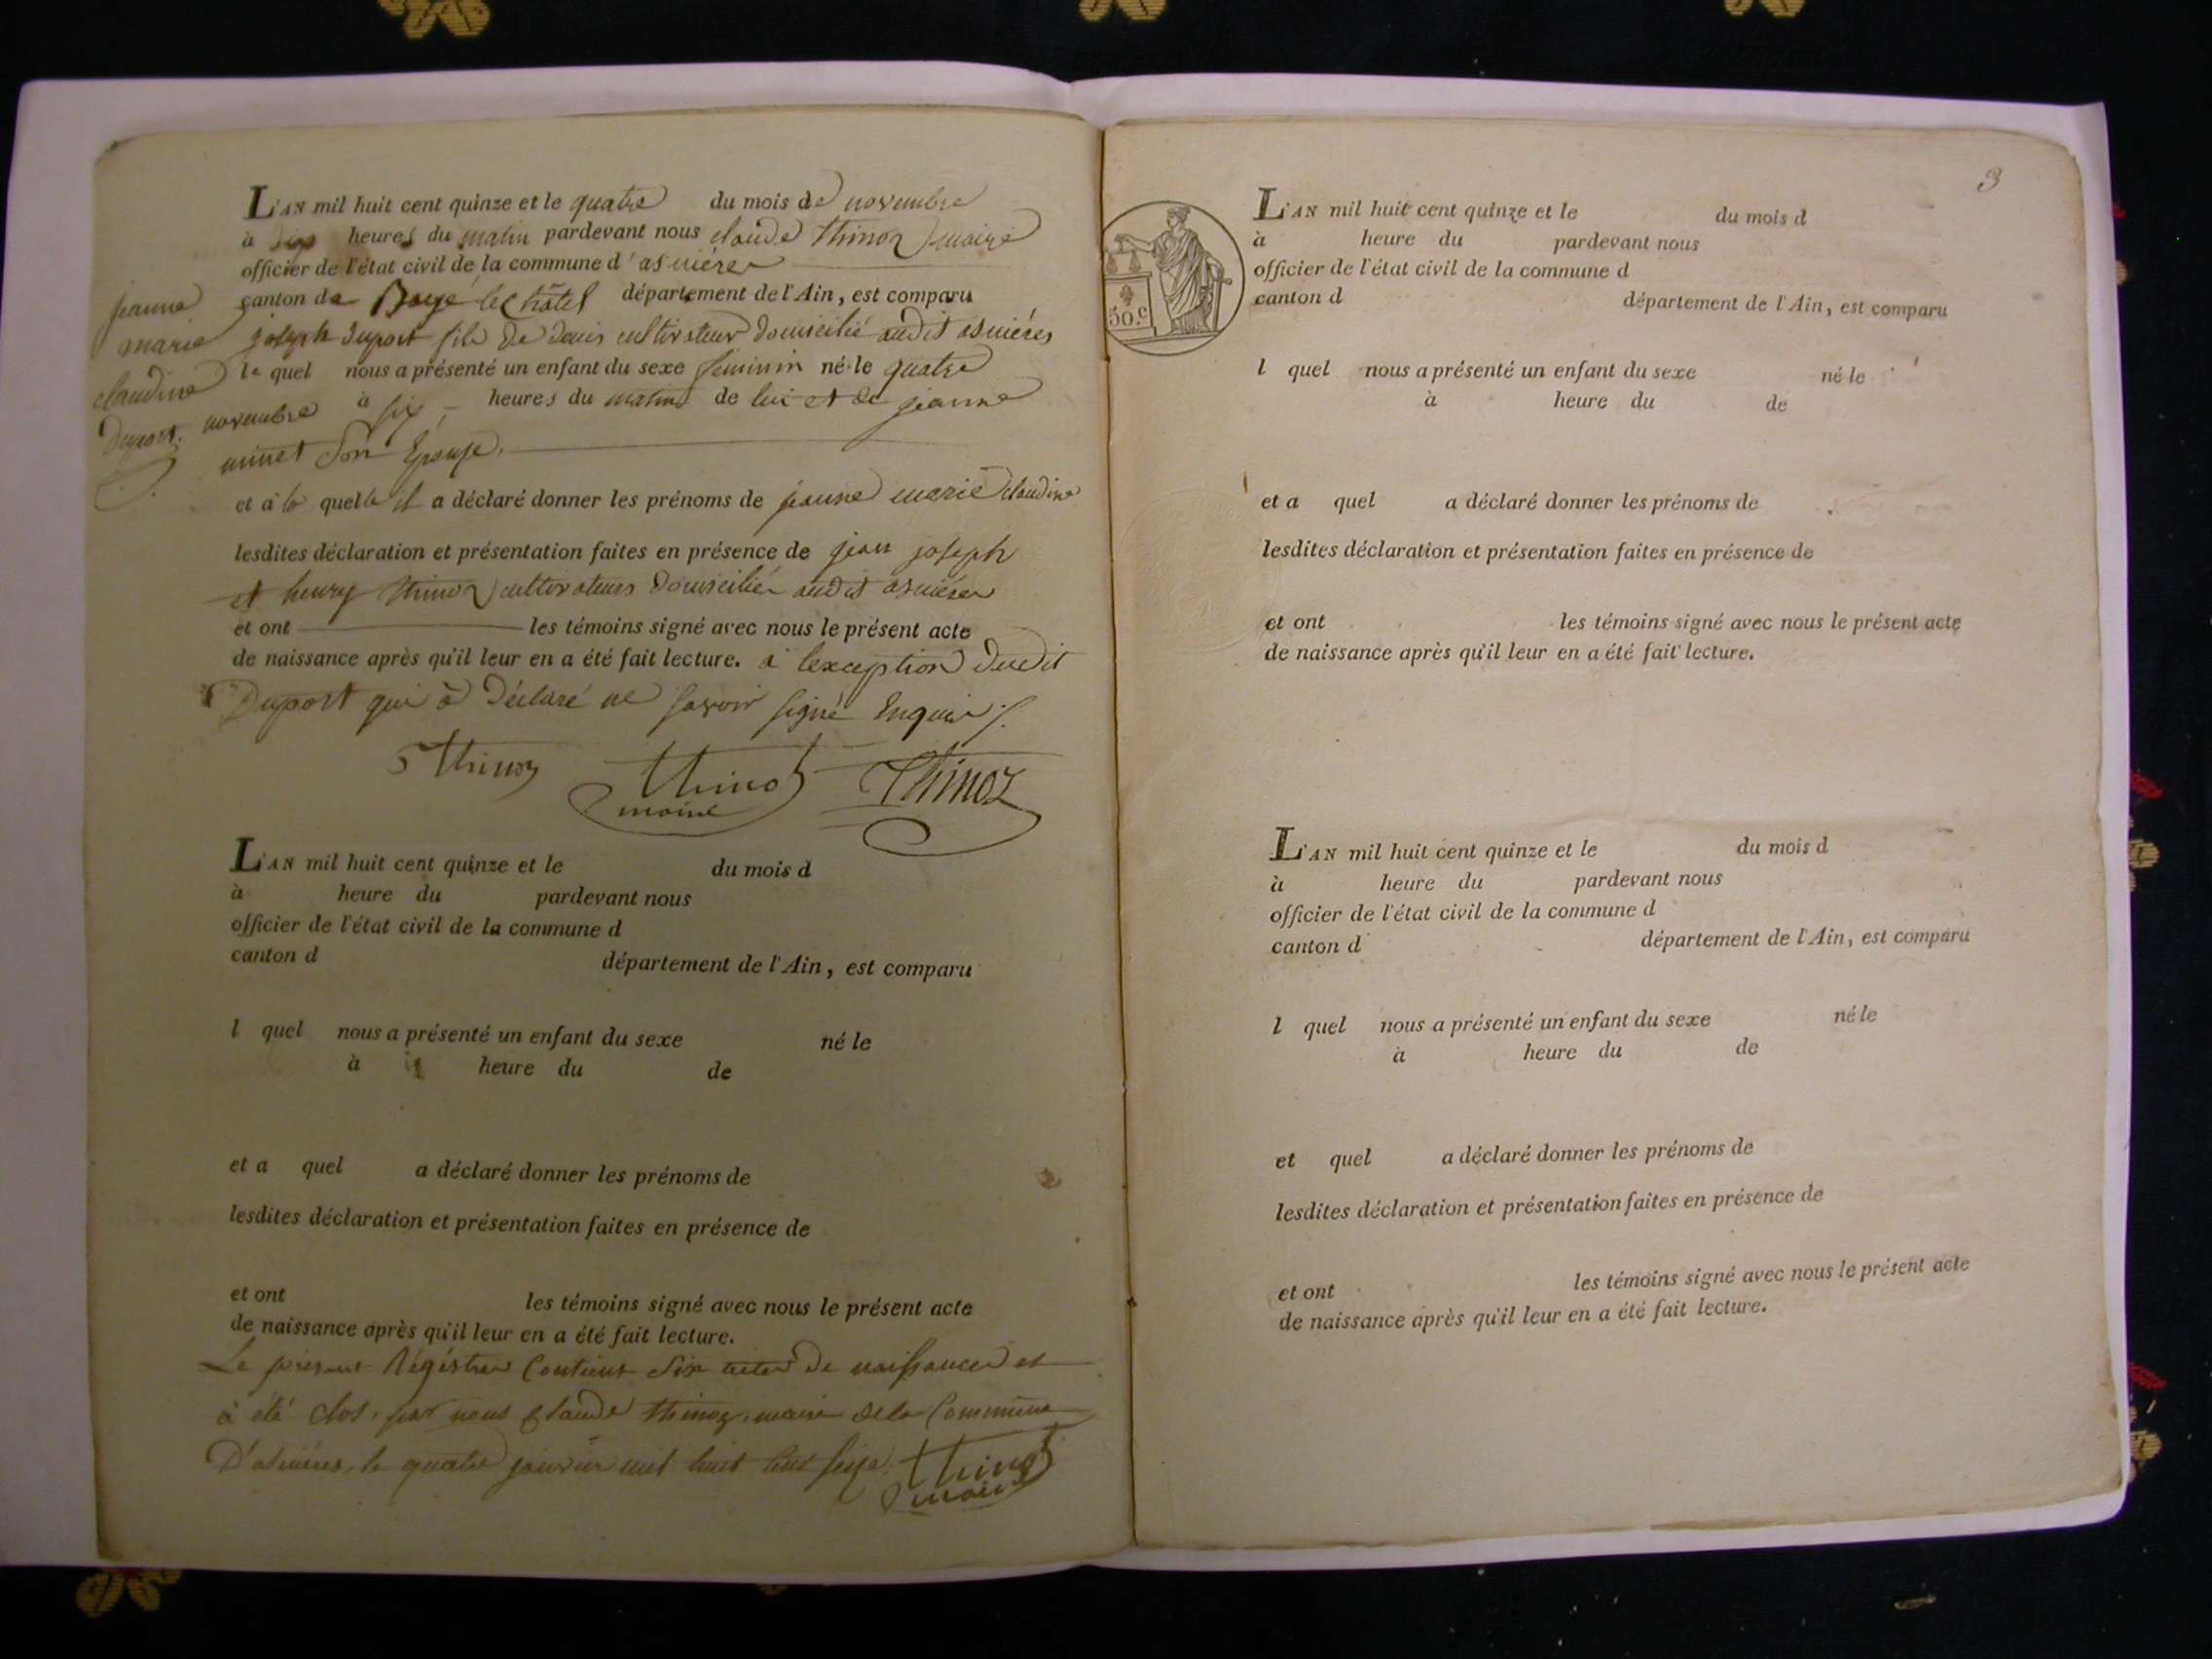 L'AN mil huit cent quinze et le quatre du mois de novembre
à dix heures du matin pardevant nous claude thinoz maire
officier de l'état civil de la commune d'asniéres
canton de Bagé le chatel département de l'Ain, est comparu
joseph duport fils de denis cultivateur domicilié audit asniéres
le quel nous a présenté un enfant du sexe féminin né le quatre
novembre à six heures du matin de lui et de jeanne
minet Son Epouse.
jeanne
marie
claudine
Duport.
et à la quelle il a déclaré donner les prénoms de jeanne marie claudine
lesdites déclaration et présentation faites en présence de jean joseph
et henry thinoz cultivateurs domiciliés audit asniéres
et ont les témoins signé avec nous le présent acte
de naissance après qu'il leur en a été fait lecture. à lexception dudit
Duport qui à déclaré ne savoir signé Enquis
Thinoz thinoz Thinoz
maire
L'AN mil huit cent quinze et le du mois d
à heure du pardevant nous
officier de l'état civil de la commune d
canton d département de l'Ain, est comparu
l quel nous a présenté un enfant du sexe né le
à heure du de
et a quel a déclaré donner les prénoms de
lesdites déclaration et présentation faites en présence de
et ont les témoins signé avec nous le présent acte
de naissance après qu'il leur en a été fait lecture.
Le présent Régistre Contient Six actes de naissances et
à été clos, par nous Claude thinoz, maire de la Commune
D'asniéres, le quatre janvier mil huit cent seize. thinoz
maire
3
L'AN mil huit cent quinze et le du mois d
à heure du pardevant nous
officier de l'état civil de la commune d
canton d département de l'Ain, est comparu
50.c
l quel nous a présenté un enfant du sexe né le
à heure du de
et a quel a déclaré donner les prénoms de
lesdites déclaration et présentation faites en présence de
et ont les témoins signé avec nous le présent acte
de naissance après qu'il leur en a été fait lecture.
L'AN mil huit cent quinze et le du mois d
à heure du pardevant nous
officier de l'état civil de la commune d
canton d département de l'Ain, est comparu
l quel nous a présenté un enfant du sexe né le
à heure du de
et quel a déclaré donner les prénoms de
lesdites déclaration et présentation faites en présence de
et ont les témoins signé avec nous le présent acte
de naissance après qu'il leur en a été fait lecture.